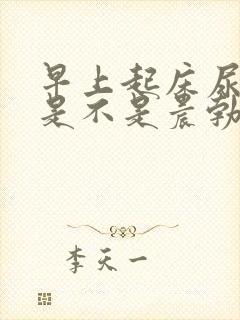 早上起床尿
是不是晨勃
李天一